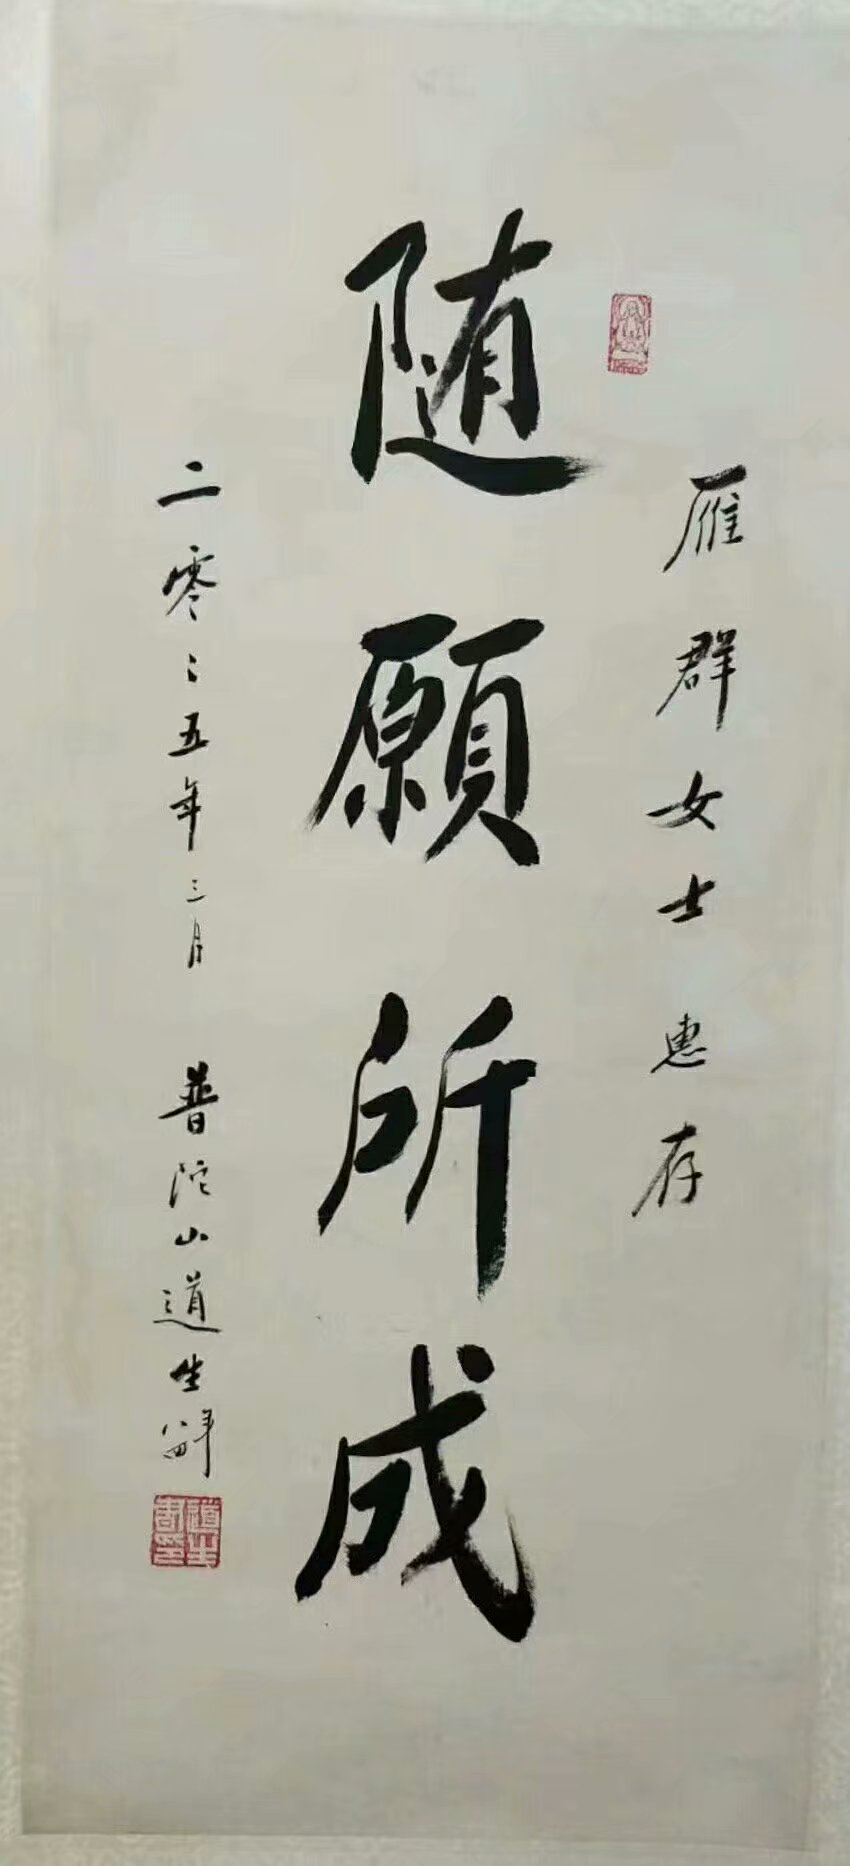 雁群女士惠存
随願所成
二零零五年三月 普陀山道生